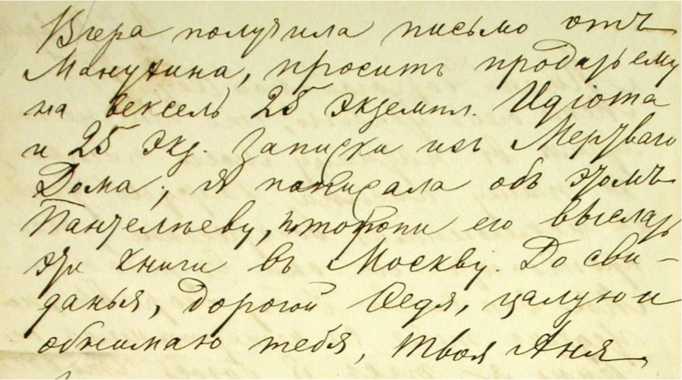 Вчера получила письмо отъ
Манухина, проситъ продать ему
на вексель 25 экземпл. Идіота
и 25 экз. Записки изъ Мертваго
Дома; я написала объ этомъ
Пантелѣеву, чтобъ его выслать
эти книги въ Москву. До сви-
данья, дорогой Федя, цалую и
обнимаю тебя, твоя Аня